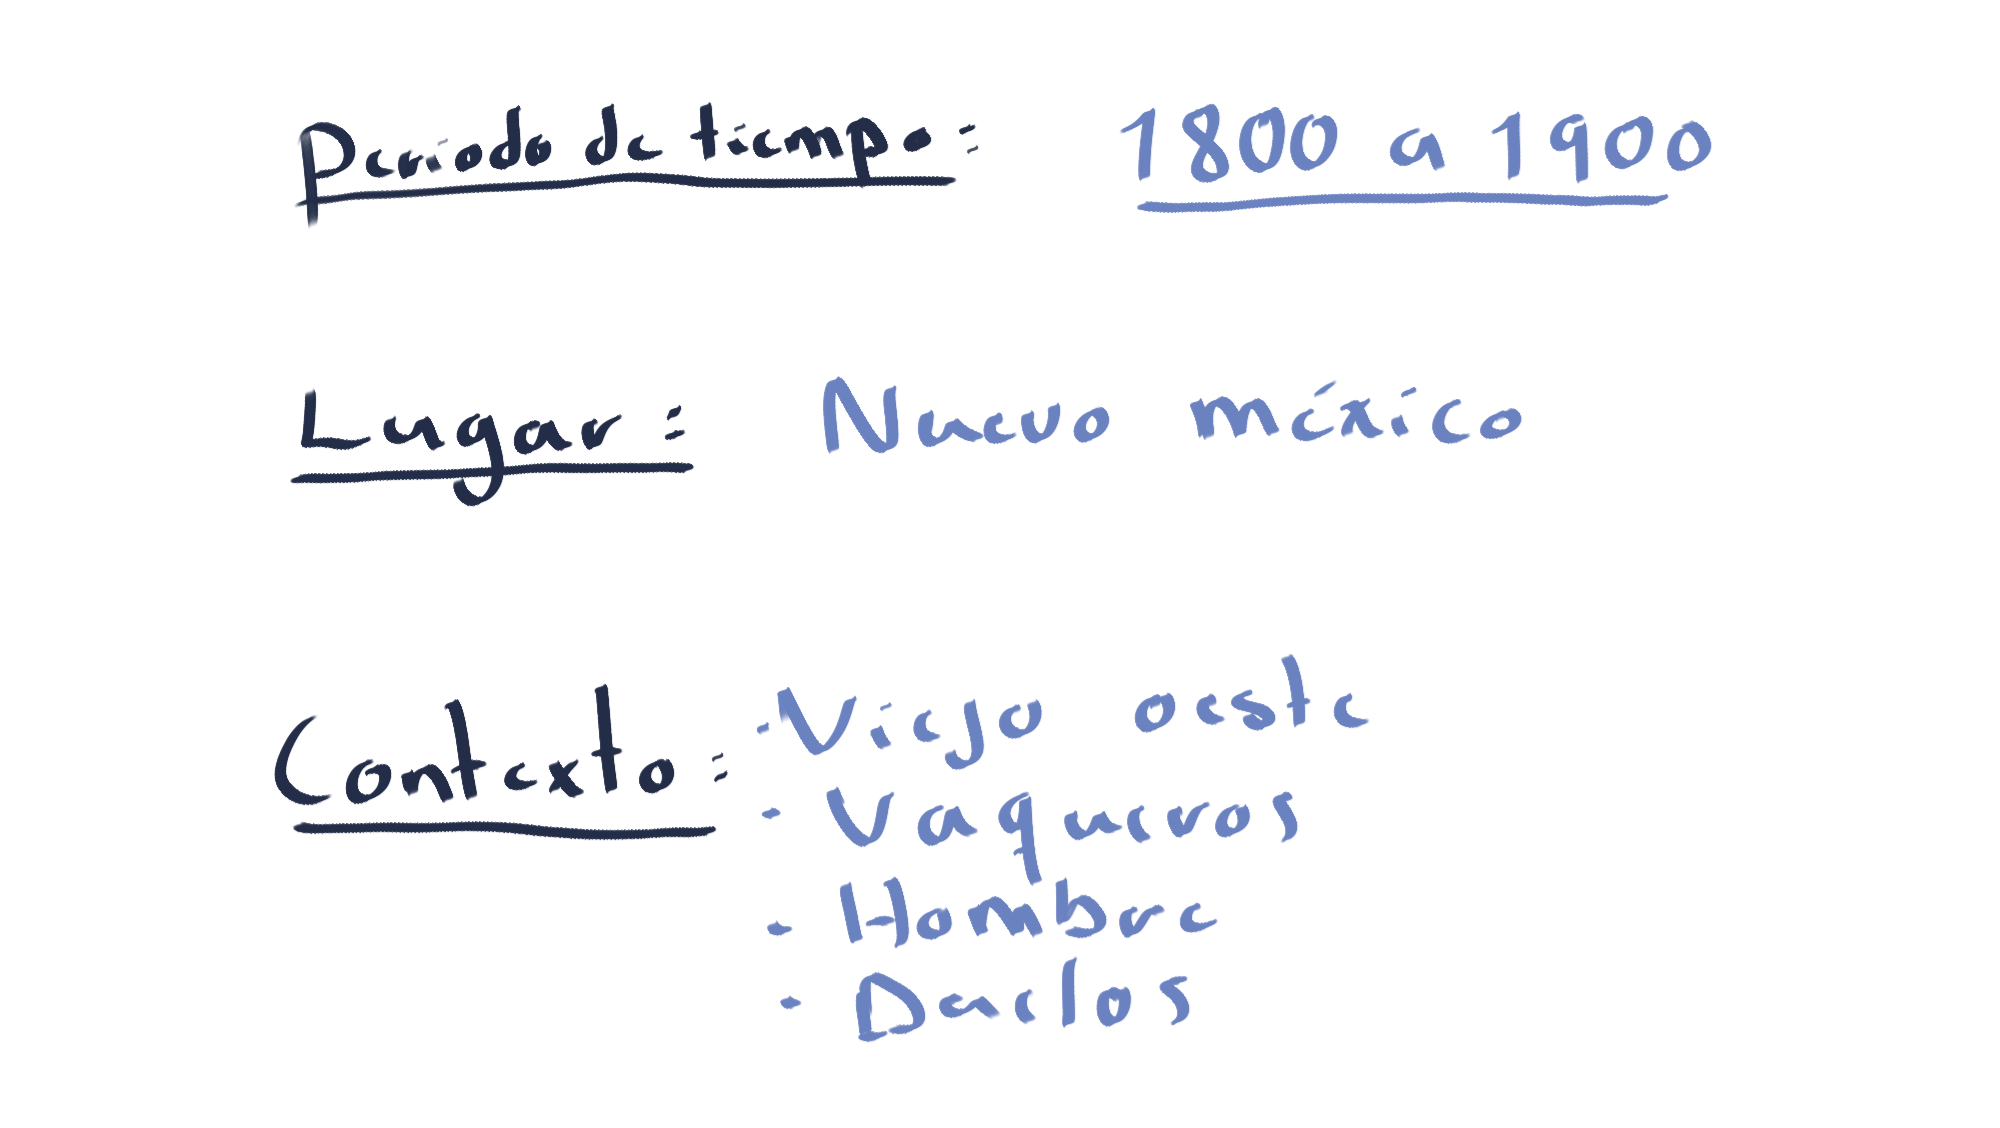 Periodo de tiempo: 1800 a 1900
Lugar: Nuevo méxico
Contexto: - Viejo oeste
- Vaqueros
- Hombre
- Duelos